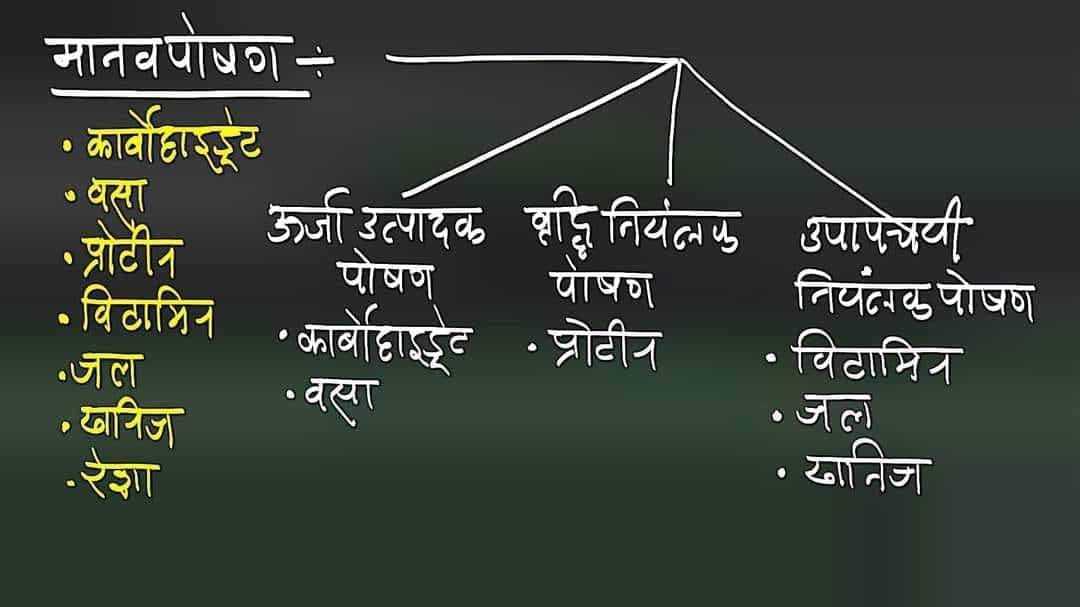 मानव पोषण ÷
• कार्बोहाइड्रेट
• वसा
• प्रोटीन
• विटामिन
• जल
• खनिज
• रेशा
ऊर्जा उत्पादक
पोषण
• कार्बोहाइड्रेट
• वसा
वृद्धि नियंत्रक
पोषण
• प्रोटीन
उपापचयी
नियंत्रक पोषण
• विटामिन
• जल
• खनिज